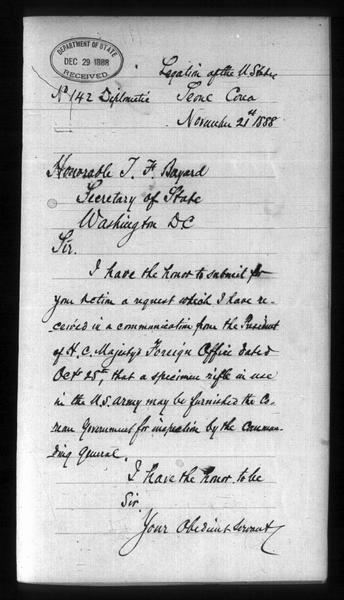 DEPARTMENT OF STATE
DEC 29 1888
RECEIVED
Legation of the U. States
No 142 Diplomatic Seoul Corea
November 21st 1888
Honorable T. F. Bayard
Secretary of State
Washington DC
Sir.
I have the honor to submit for
your action a request which I have re-
ceived in a communication from the President
of H. C. Majesty's Foreign Office dated
Oct. 25th, that a specimen rifle in use
in the U.S. Army may be furnished the Co-
rean Government for inspection by the Comman-
ding General.
I have the honor to be
Sir
Your Obedient Servant